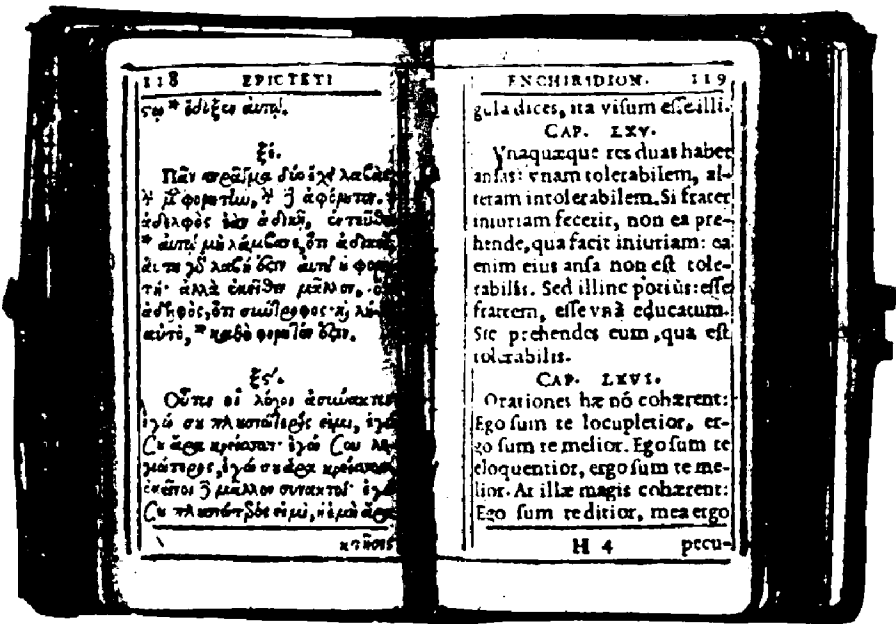 118 EPICTETI
τῳ * ἔδοξεν αὐτῷ.
ξέ.
Πᾶν πρᾶγμα δύο ἔχει λαβὰς
ἀδελφὸς ἐὰν ἀδικῇ, ἐντεῦθεν
* αὐτὸ μὴ λάμβανε, ὅτι ἀδικεῖ
τή· ἀλλὰ ἐκεῖθεν μᾶλλον, ὅτι
αὐτὸ, * καθὸ φορητόν ἐστιν.
ξϛ´.
Οὗτοι οἱ λόγοι ἀσύνακτοι
ἐγώ σου πλουσιώτερός εἰμι, ἐγώ
σου ἄρα κρείσσων· ἐγώ σου λο-
γιώτερος, ἐγώ σου ἄρα κρείσσων
ἐκεῖνοι δὲ μᾶλλον συνακτοί· ἐγώ
σου πλουσιώτερός εἰμι, ἡ ἐμὴ ἄρα
κτῆσις
ENCHIRIDION. 119
gula dices, ita visum esse illi.
CAP. LXV.
Vnaquæque res duas habet
ansas: vnam tolerabilem, al-
teram intolerabilem. Si frater
iniuriam fecerit, non ea pre-
hende, qua facit iniuriam: ea
enim eius ansa non est tole-
rabilis. Sed illinc potiùs: esse
fratrem, esse vnà educatum.
Sic prehendes eum, qua est
tolerabilis.
CAP. LXVI.
Orationes hæ nō cohærent:
Ego sum te locupletior, er-
go sum te melior. Ego sum te
eloquentior, ergo sum te me-
lior. At illæ magis cohærent:
Ego sum te ditior, mea ergo
H 4 pecu-